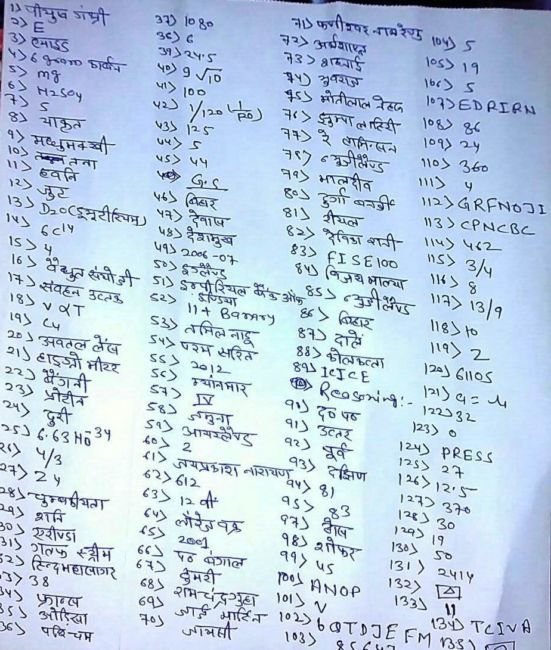 1) पीयुष ग्रंथी
2) E
3) एमाइड
4) 6 gram कार्बन
5) mg
6) H2SO4
7) 5
8) याकृत
9) मधुमक्खी
10) तना
11) ध्वनि
12) जुट
13) D2O (ड्यूटीरियम)
14) 6C14
15) 4
16) वैद्युत संयोजी
17) संवहन उत्तक
18) V α T
19) Cu
20) अवतल लेंस
21) हाइड्रोमीटर
22) बैंगनी
23) प्रोटीन
24) दुरी
25) 6.63 10-34
26) 4/3
27) 24
28) चुम्बकीयता
29) शनि
30) एरीण्डा
31) गल्फ स्ट्रीम
32) हिन्दमहासागर
33) 38
34) फ्रान्स
35) ओडिशा
36) पश्चिम
37) 1080
38) 6
39) 24.5
40) 9√10
41) 100
42) 1/120
43) 125
44) 5
45) 44
G.S
46) बिहार
47) देवास
48) देशमुख
49) 2006-07
50) इंग्लैण्ड
51) इम्पीरियल बैंक ऑफ इण्डिया
52) 11th Battary
53) तमिलनाडु
54) परम सरित
55) 2012
56) म्यानमार
57) IV
58) जमुना
59) आयरलैण्ड
60) 2
61) जयप्रकाश नारायण
62) 612
63) 12 वीं
64) लॉरेंज वक्र
65) 2001
66) प० बंगाल
67) ठुमरी
68) रामचंद्र गुहा
69) आर्ड मार्टिन
70) जायसी
71) फणीश्वर नाथ रेणु
72) अर्थशास्त्र
73)
74) युवराज
75) मोतीलाल नेहरू
76) झुम्पा लाहिरी
77)
78) न्यूजीलैण्ड
79) मालदीव
80) दुर्गा बनर्जी
81) रीयल
82)
83) FISE100
84) विजय माल्या
85) न्यूजीलैण्ड
86) बिहार
87) दालें
88) कोलकत्ता
89) ICICE
Reasoning:-
90) द० प०
91) उत्तर
92) पूर्व
93) दक्षिण
94) 81
95) 83
97)
98) शोफर
99) 45
100) ANOP
101) V
102) 6QTDJEFM
103) 85647
104) 5
105) 19
106) 5
107) EDRIRN
108) 86
109) 24
110) 360
111) 4
112) GRFNOJI
113) CPNCBC
114) 462
115) 3/4
116) 8
117) 13/9
118) 10
119) 2
120) 61105
121) 9 = 4
122) 32
123) 0
124) PRESS
125) 27
126) 12.5
127) 370
128) 30
129) 19
130) 50
131) 2414
132)
133) 11
134) TCIVA
135)